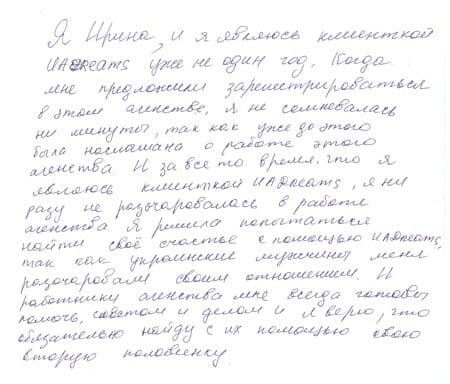 Я Ирина, и я являюсь клиенткой
UADReams уже не один год. Когда
мне предложили зарегистрироваться
в этом агенстве, я не сомневалась
ни минуты, так как уже до этого
была наслышана о работе этого
агенства. И за все то время, что я
являюсь клиенткой UADreams, я ни
разу не разочаровалась в работе
агенства. Я решила попытаться
найти своё счастье с помощью UADreams,
так как украинские мужчины меня
разочаровали своим отношением. И
работники агенства мне всегда готовы
помочь, советом и делом и я верю, что
обязательно найду с их помощью свою
вторую половинку.